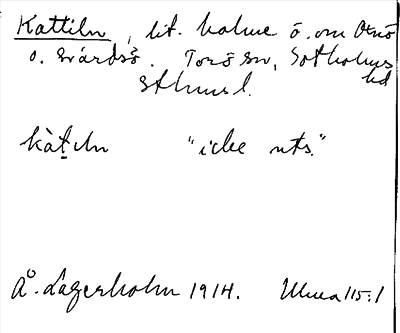 Kattiln, lit. holme ö. om Oxnö
o. Svärdsö. Torö sn, Sotholms hd
Sthms l.
kàtıln "icke uts."
Å. Lagerholm 1914. Uma 115:1